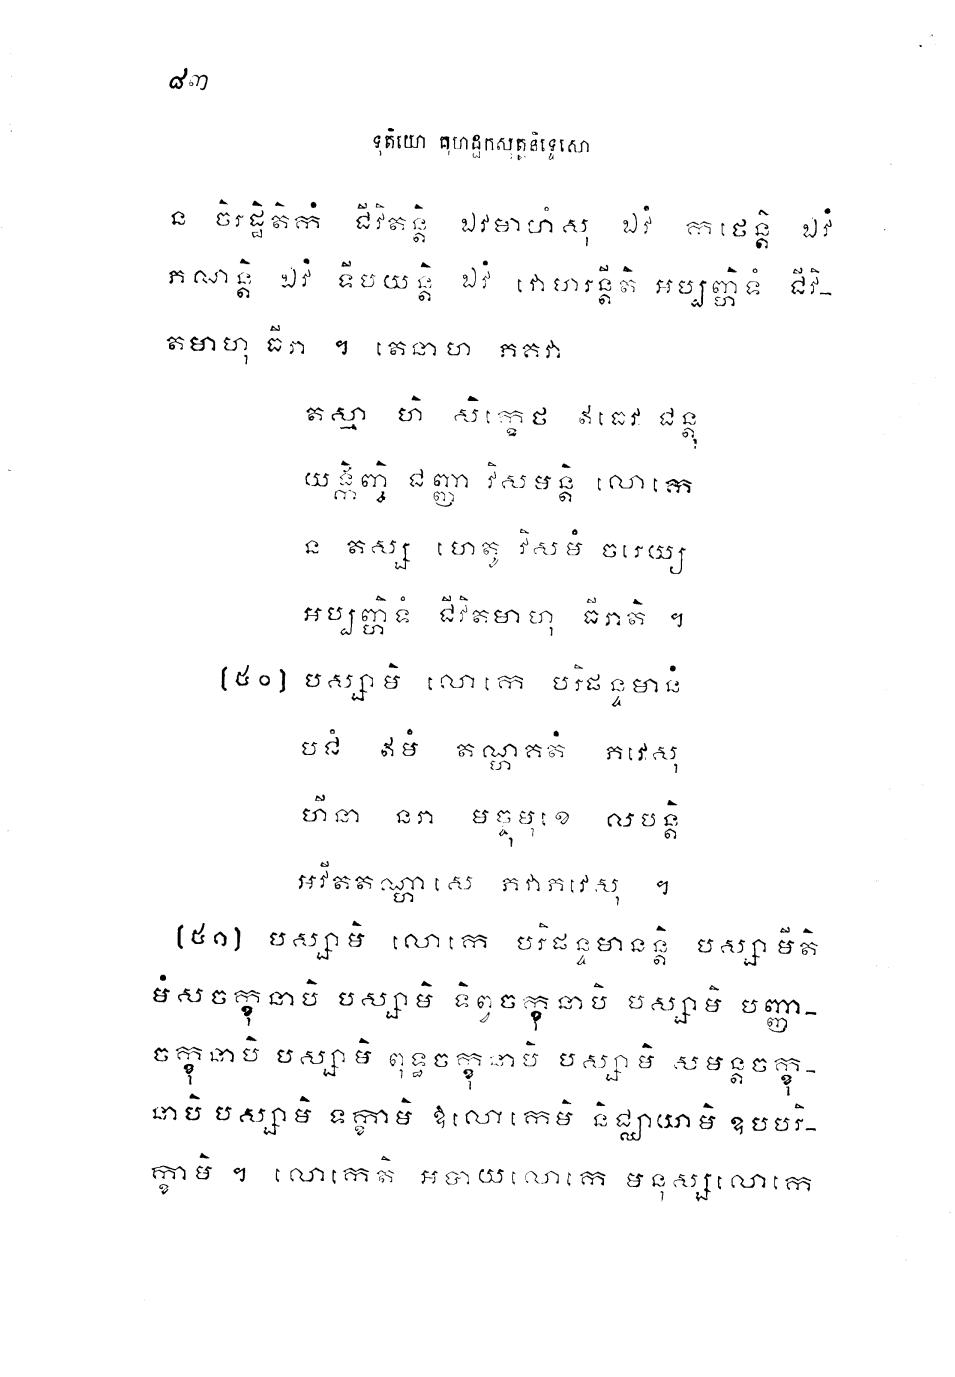 ៨៣
ទុតិយោ គុហដ្ឋកសុត្តនិទ្ទេសោ
ន ចិរដ្ឋិតិកំ ជីវិតន្តិ ឯវមាហំសុ ឯវំ កថេន្តិ ឯវំ
ភណន្តិ ឯវំ ទីបយន្តិ ឯវំ វោហរន្តីតិ អប្បញ្ហិទំ ជីវិ-
តមាហុ ធីរា ។ តេនាហ ភគវា
តស្មា ហិ សិក្ខេថ ឥធេវ ជន្តុ
យង្កិញ្ចិ ជញ្ញា វិសមន្តិ លោកេ
ន តស្ស ហេតូ វិសមំ ចរេយ្យ
អប្បញ្ហិទំ ជីវិតមាហុ ធីរាតិ ។
(៥០) បស្សាមិ លោកេ បរិផន្ទមានំ
បជំ ឥមំ តណ្ហគតំ ភវេសុ
ហីនា នរា មច្ចុមុខេ លបន្តិ
អវីតតណ្ហា សេ ភវាភវេសុ ។
(៥១) បស្សាមិ លោកេ បរិផន្ទមានន្តិ បស្សាមីតិ
មំសចក្ខុនាបិ បស្សាមិ ទិព្វចក្ខុនាបិ បស្សាមិ បញ្ញា-
ចក្ខុនាបិ បស្សាមិ ពុទ្ធចក្ខុនាបិ បស្សាមិ សមន្តចក្ខុ-
នាបិ បស្សាមិ ទក្ខាមិ ឱលោកេមិ និជ្ឈាយាមិ ឧបបរិ-
ក្ខាមិ ។ លោកេតិ អបាយលោកេ មនុស្សលោកេ